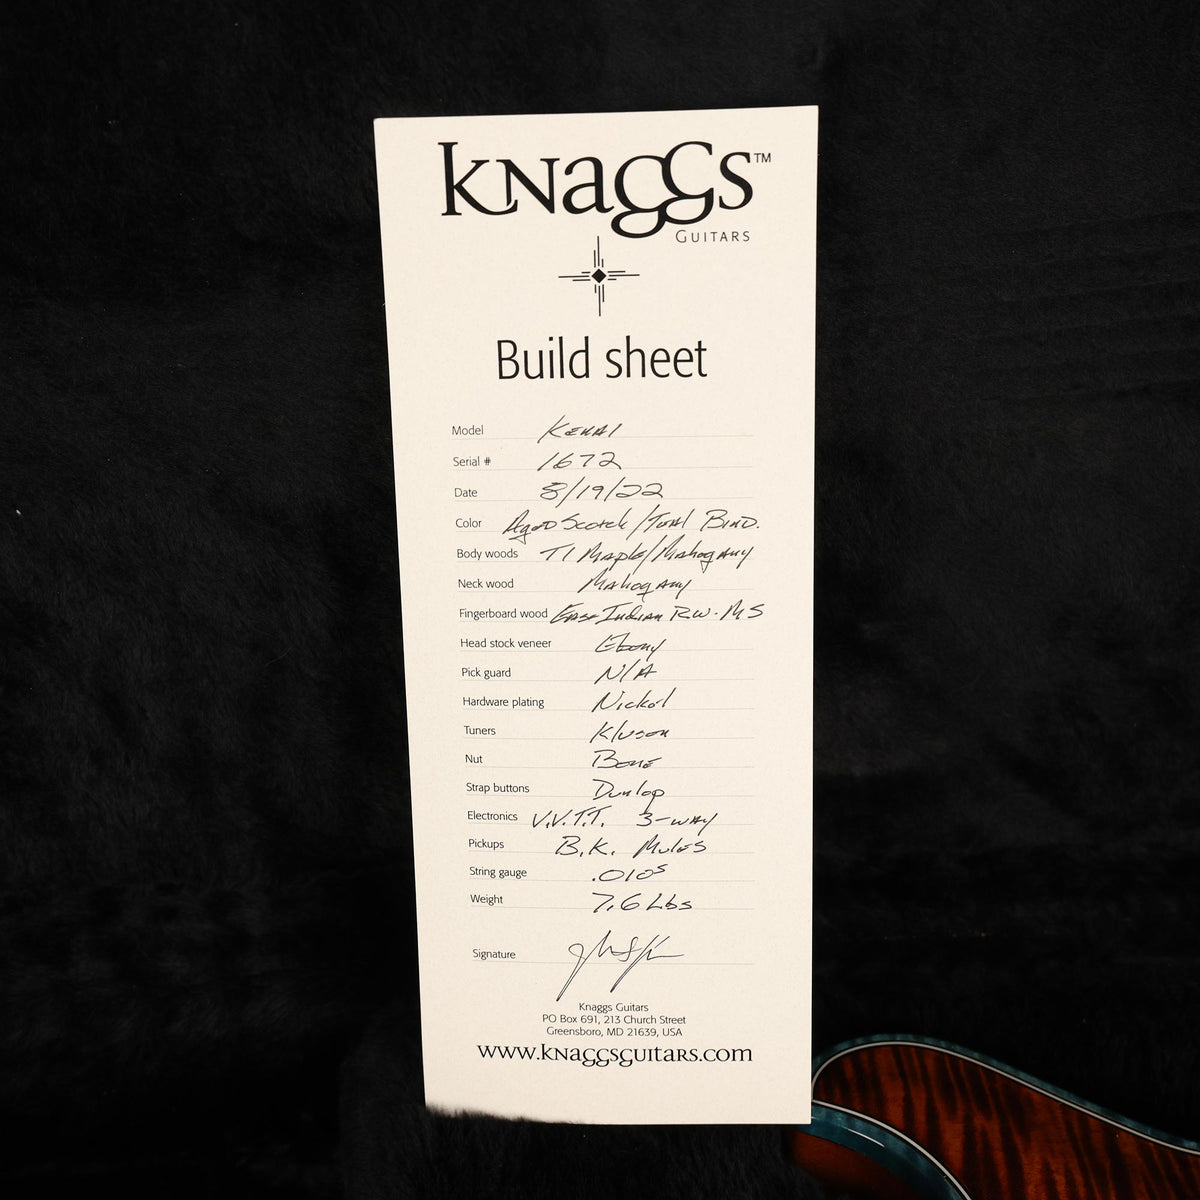 Knaggs™
Guitars
Build sheet
Model Kenai
Serial # 1672
Date 8/19/22
Color Aged Scotch / Turq Bind.
Body woods T1 Maple/Mahogany
Neck wood Mahogany
Fingerboard wood East Indian RW. MS
Head stock veneer Ebony
Pick guard N/A
Hardware plating Nickel
Tuners Kluson
Nut Bone
Strap buttons Dunlop
Electronics V.V.T.T. 3-way
Pickups B.K. Mules
String gauge .010s
Weight 7.6 Lbs
Signature
Knaggs Guitars
PO Box 691, 213 Church Street
Greensboro, MD 21639, USA
www.knaggsguitars.com